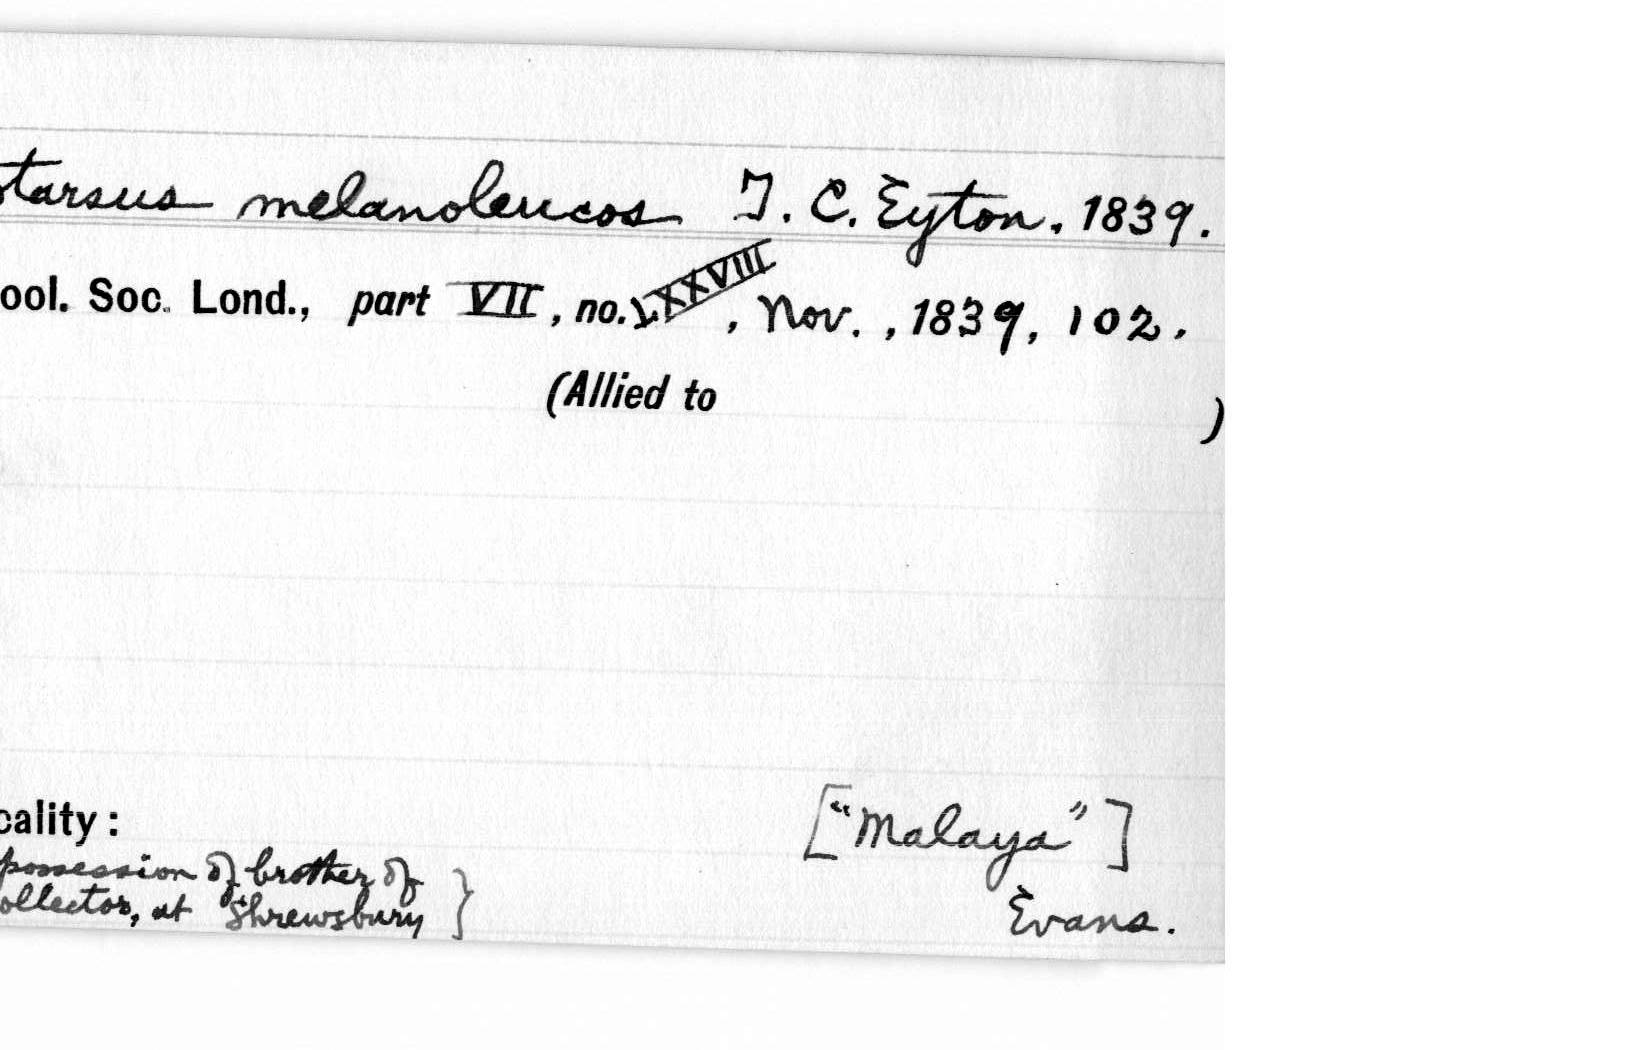 tarsus melanoleucos T. C. Eyton. 1839.
ool. Soc. Lond., part VII, no. LXXVIII, Nov., 1839, 102.
(Allied to )
cality: ["Malaya"]
possession of brother of
ollector, at Shrewsbury } Evans.